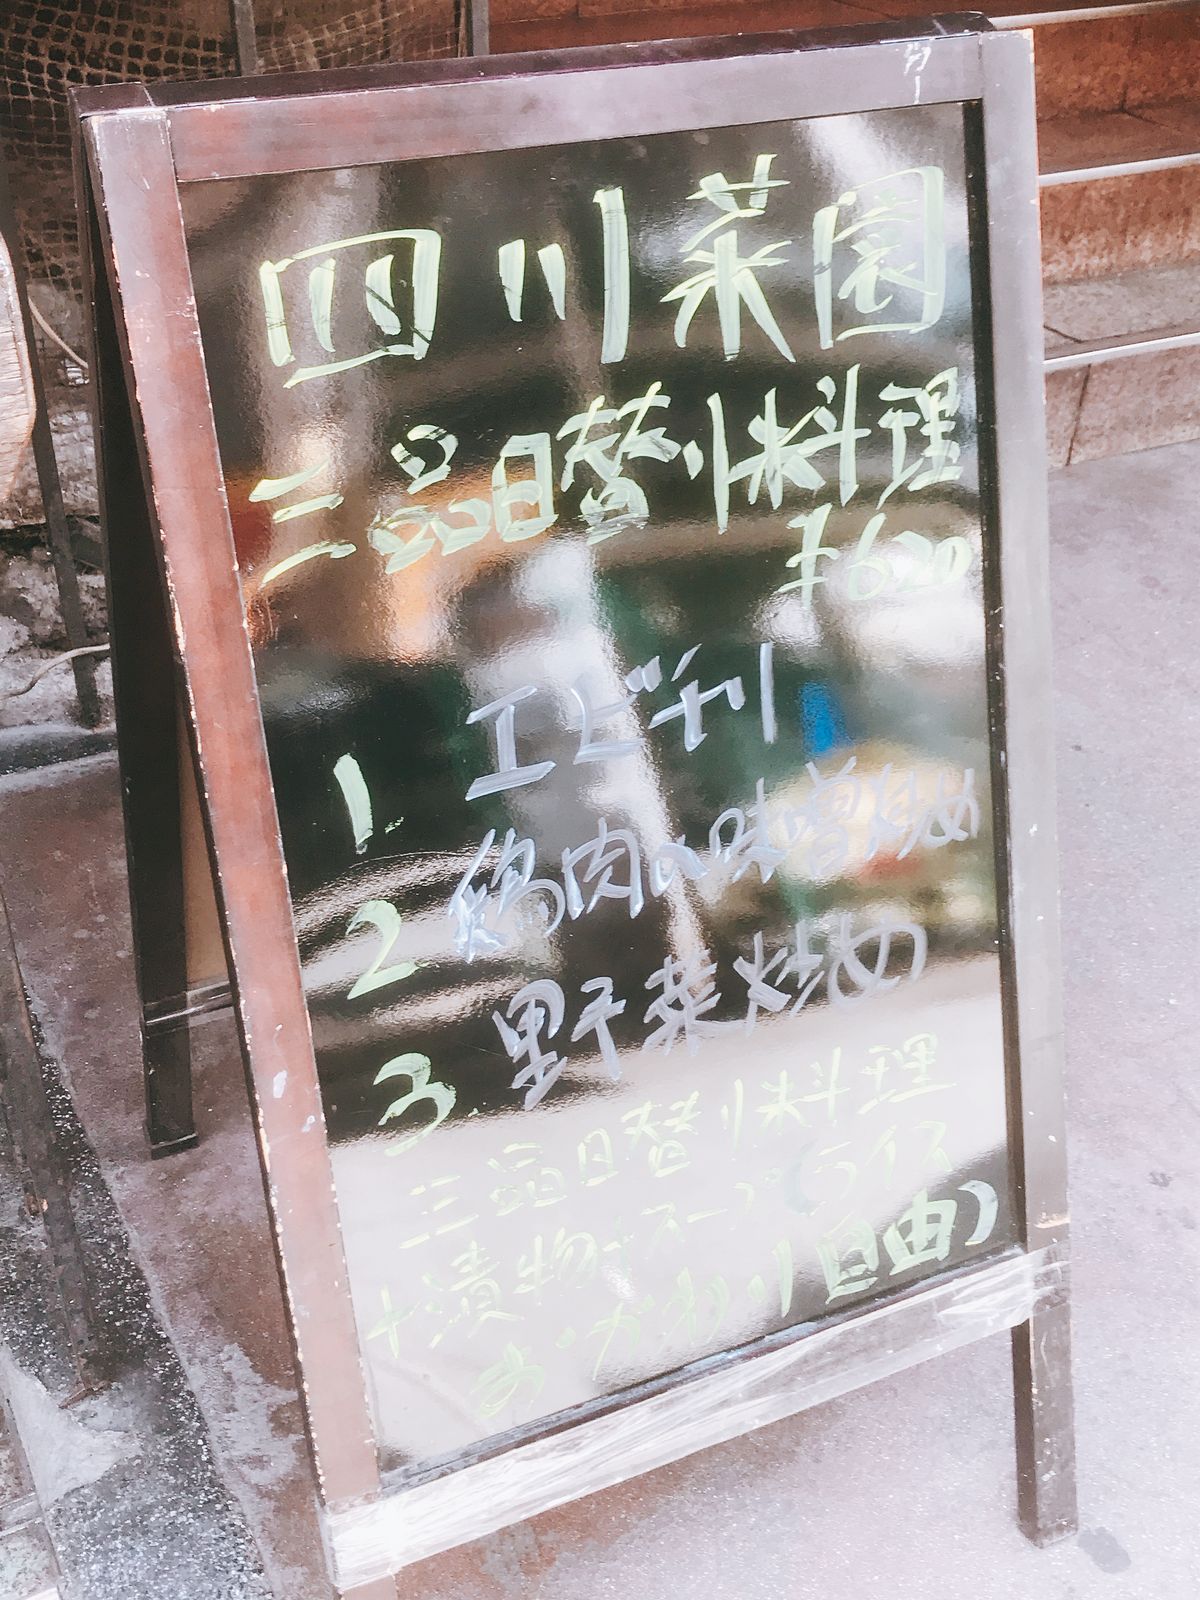 四川菜園
三品日替り料理
¥620
1. エビチリ
2 鶏肉の味噌炒め
3. 野菜炒め
三品日替り料理
+漬物+スープ(ライス
おかわり自由)